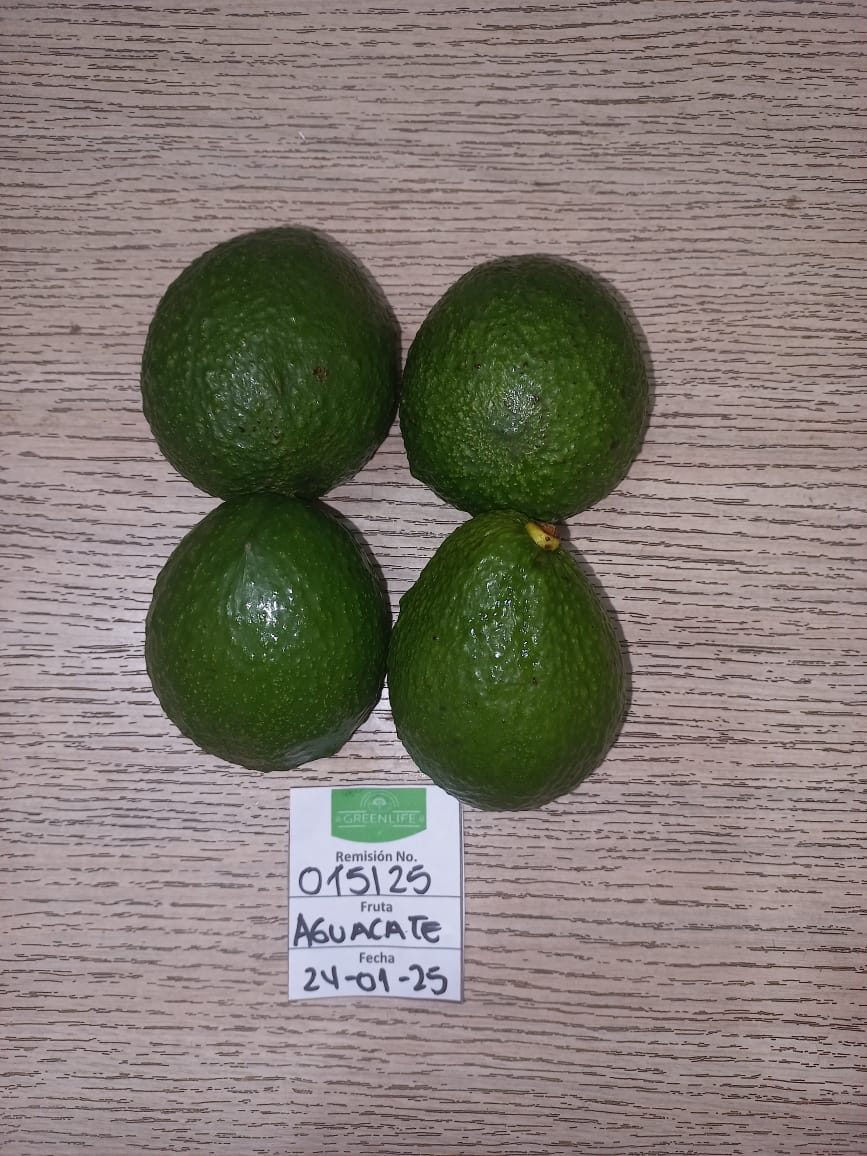 GREENLIFE
Remisión No.
015125
Fruta
AGUACATE
Fecha
24-01-25